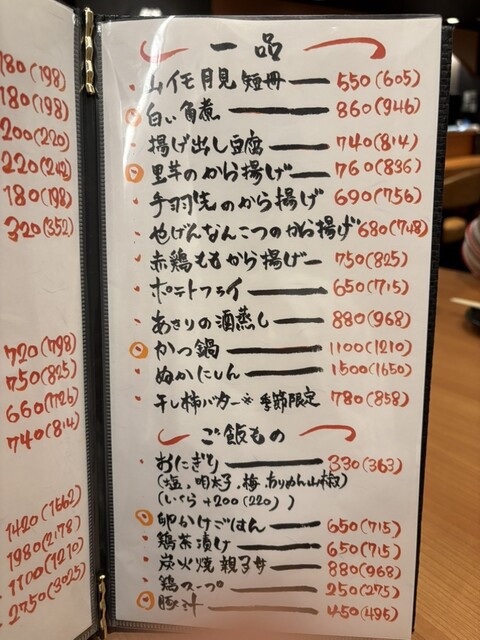 180(198)
180(198)
200(220)
220(242)
180(198)
320(352)
720(798)
750(825)
660(726)
740(814)
1420(1562)
1980(2178)
1100(1210)
2750(3025)
一品
山イモ月見短冊 550(605)
白い角煮 860(946)
揚げ出し豆腐 740(814)
里芋のから揚げ 760(836)
手羽先のから揚げ 690(756)
やげんなんこつのから揚げ 680(748)
赤鶏ももから揚げ 750(825)
ポテトフライ 650(715)
あさりの酒蒸し 880(968)
かつ鍋 1100(1210)
ぬかにしん 1500(1650)
干し柿バター※季節限定 780(858)
ご飯もの
おにぎり 330(363)
(塩、明太子、梅、ちりめん山椒)
(いくら+200(220))
卵かけごはん 650(715)
鶏茶漬け 650(715)
炭火焼親子丼 880(968)
鶏スープ 250(275)
豚汁 450(495)